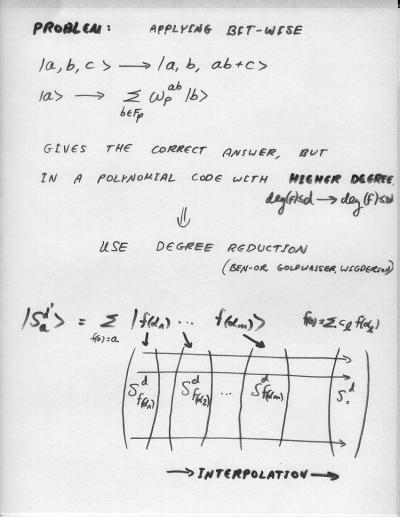 PROBLEM: APPLYING BIT-WISE
|a,b,c> → |a, b, ab+c>
|a> → Σ_{b∈F_p} ω_p^{ab} |b>
GIVES THE CORRECT ANSWER, BUT
IN A POLYNOMIAL CODE WITH HIGHER DEGREE.
deg(f)≤d → deg(f)≤2d
⇓
USE DEGREE REDUCTION
(BEN-OR, GOLDWASSER, WIGDERSON)
|S_a^{d'}> = Σ_{f(0)=a} |f(α_1) ... f(α_m)> f(0)=Σ c_l f(α_l)
S_{f(α_1)}^d S_{f(α_2)}^d ... S_{f(α_m)}^d S_.^d
→ INTERPOLATION →